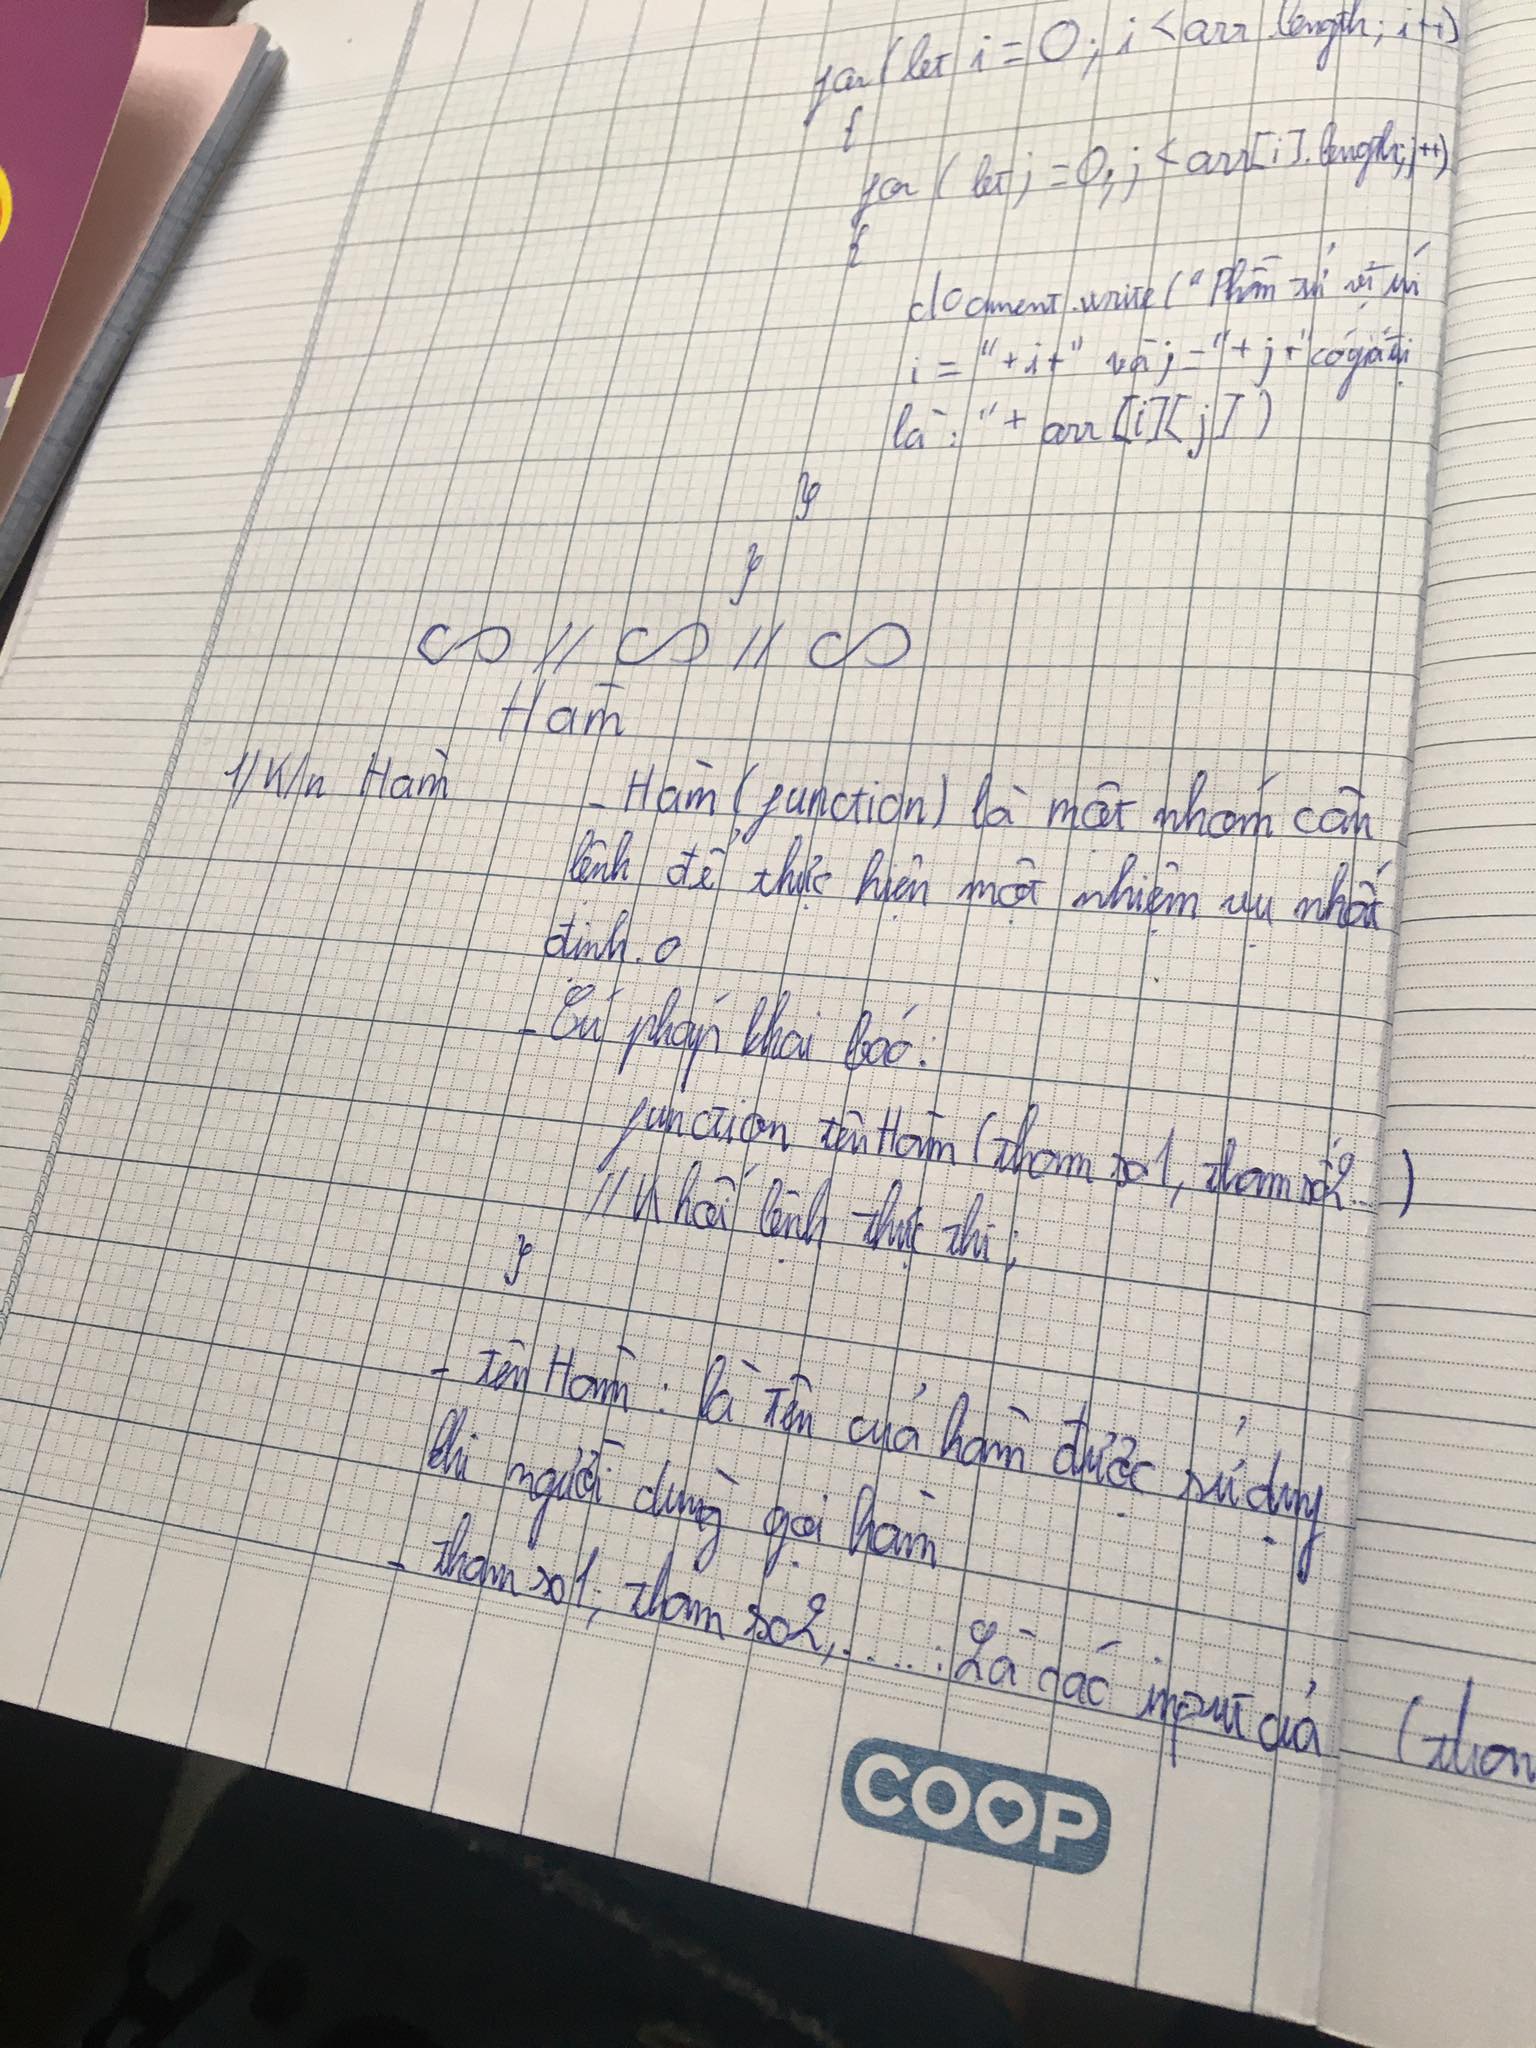 for (let i = 0; i < arr.length; i++)
{
for (let j = 0; j < arr[i].length; j++)
{
document.write("Phần tử vị trí
i = "+i+" và j = "+j+" có giá trị
là: "+ arr[i][j])
}
}
Hàm
1/ K/n Hàm
- Hàm (function) là một nhóm câu
lệnh để thực hiện một nhiệm vụ nhất
định.
- Cú pháp khai báo:
function tênHàm (tham số 1, tham số 2...)
// Khối lệnh thực thi;
}
- tênHàm: là tên của hàm được sử dụng
khi người dùng gọi hàm
- tham số 1, tham số 2,.....: Là các input của (tham
COOP